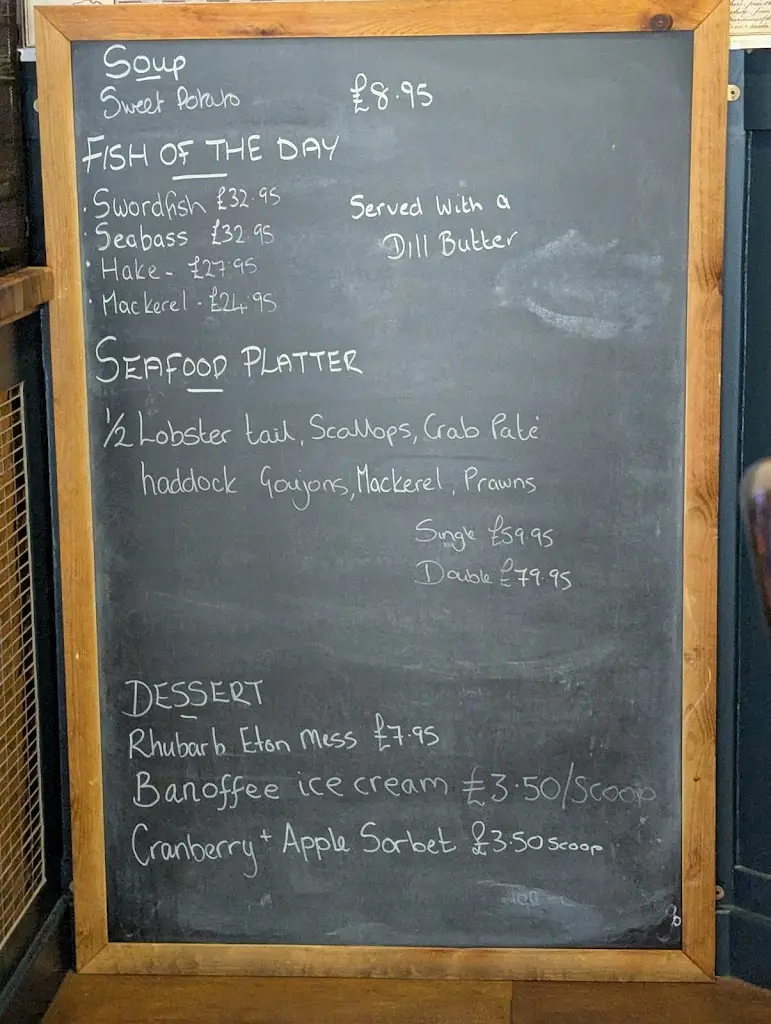 Soup
Sweet Potato £8.95
FISH OF THE DAY
· Swordfish £32.95
· Seabass £32.95
· Hake - £27.95
· Mackerel - £24.95
Served with a
Dill Butter
SEAFOOD PLATTER
1/2 Lobster tail, Scallops, Crab Paté
haddock Goujons, Mackerel, Prawns
Single £59.95
Double £79.95
DESSERT
Rhubarb Eton Mess £7.95
Banoffee ice cream £3.50/Scoop
Cranberry + Apple Sorbet £3.50 scoop